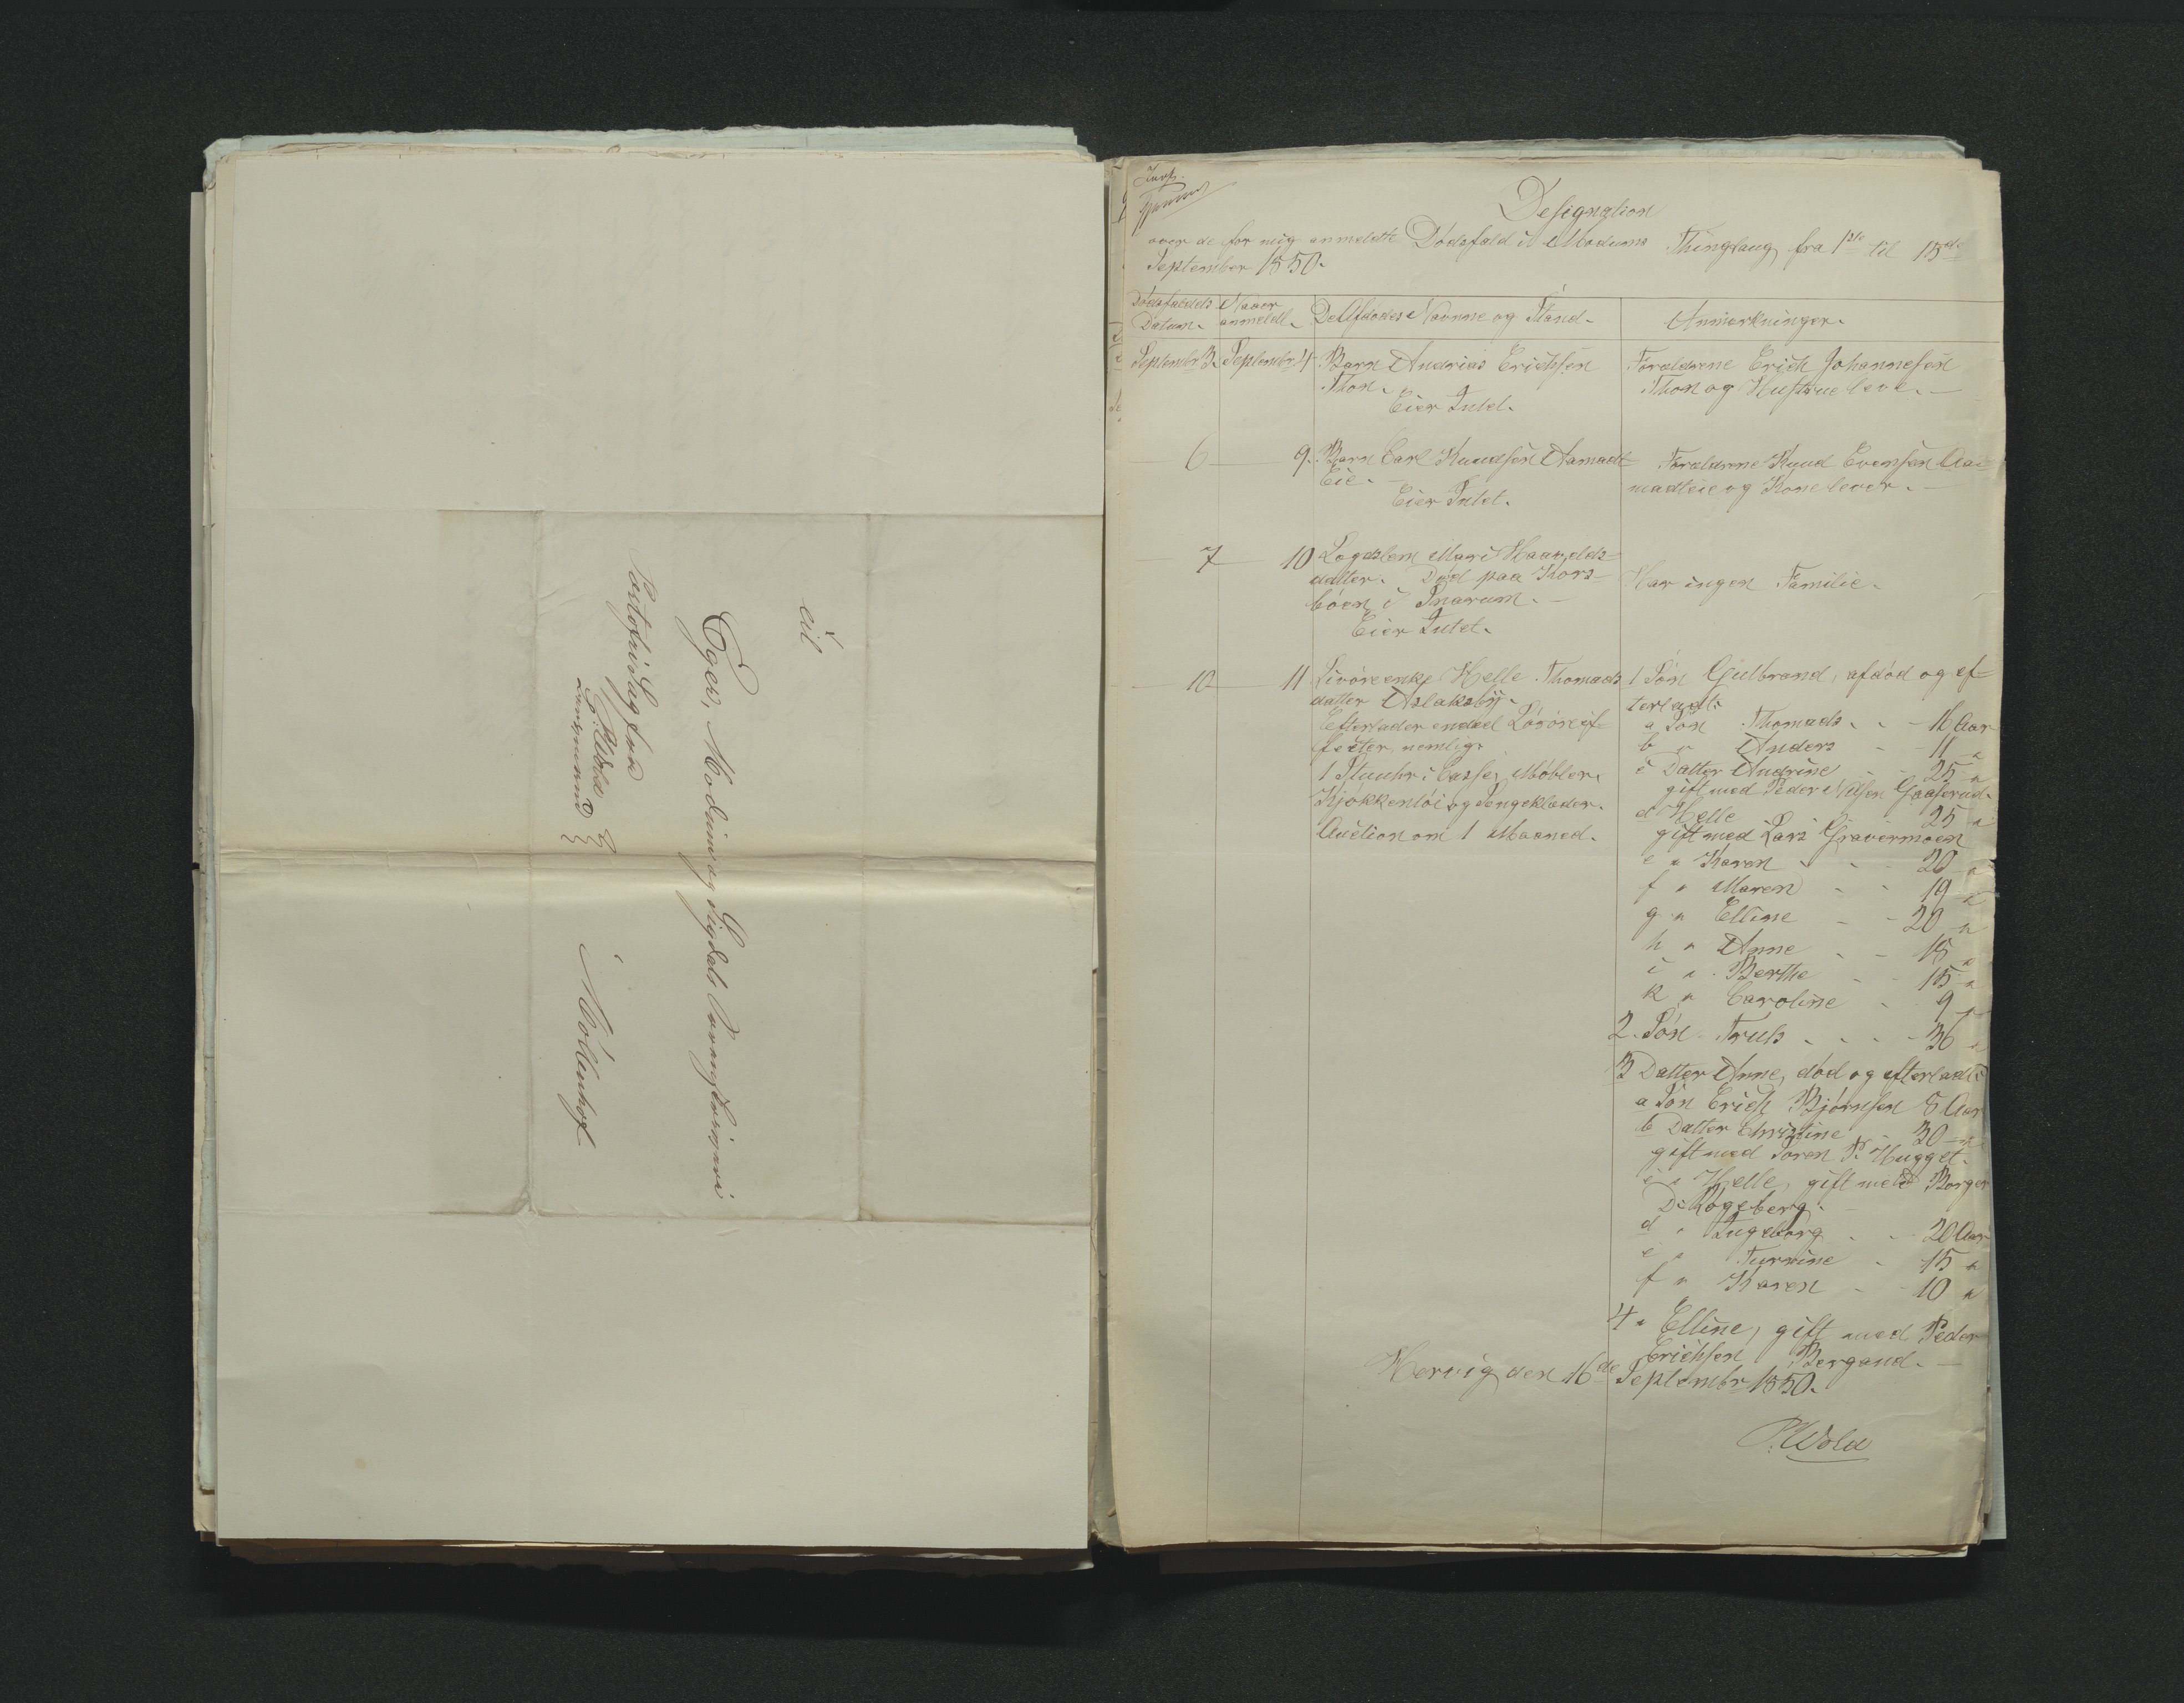 til
Eger, Modum og Sigdals Sorenskriveri
Postofri Sag fra
P. Wold
Lensmand
Møllenhof
Designation
over de for mig anmeldte Dødsfald i Modums Thinglaug fra 1ste til 15de
September 1850.
Dødsfaldets Datum.
Naar anmeldt.
De Afdødes Navne og Stand.
Anmærkninger.
Septembr 3. Septembr 4 Barn Andrias Erichsen
Thon.
Eier Intet.
Forældrene Erich Johannesen
Thon og Hustrue leve. —
6 — 9. Barn Carl Knudsen Aamodt
Eie. —
Eier Intet.
Forældrene Knud Evensen Aa-
modteie og Kone lever. —
— 7 — 10 Lægdslem Mari Haavolds-
datter. Død paa Kors-
bøen i Snarum. —
Eier Intet.
Har ingen Familie.
— 10 — 11 Livøreenke Helle Thomads
datter Aslaksby.
Efterlader endeel Løsøreef-
fecter, nemlig:
1 Stuuhr i Casse, Møbler,
Kjøkkentøi og Sengeklæder.
Auction om 1 Maaned.
1 Søn Gulbrand, afdød og ef-
terladt:
a Søn Thomads - - 16 Aar
b " Anders - 11 "
c Datter Andrine - 25 "
gift med Peder Nilsen Gaaserud.
d Helle 25 "
gift med Lars Gravermoen
e " Karen - - 20 "
f " Maren - - 19 "
g " Elline - - 20 "
h " Anne - - 18 "
i " Berthe - - 15 "
k " Caroline - 9 "
2. Søn Truls - - - - 36 "
3 Datter Anne, død og efterladt:
a Søn Erich Bjørnsen 8 Aar
b Datter Christine - 30 "
gift med Søren P. Hugget.
c " Helle, gift med Borger
D. Bøgeberg.
d " Ingeborg - - 20 Aar
e " Turrine - 15 "
f " Karen - - 10 "
4 " Elline, gift med Peder
Erichsen Bergand. —
Hervig den 16de Septembr 1850.
P. Wold